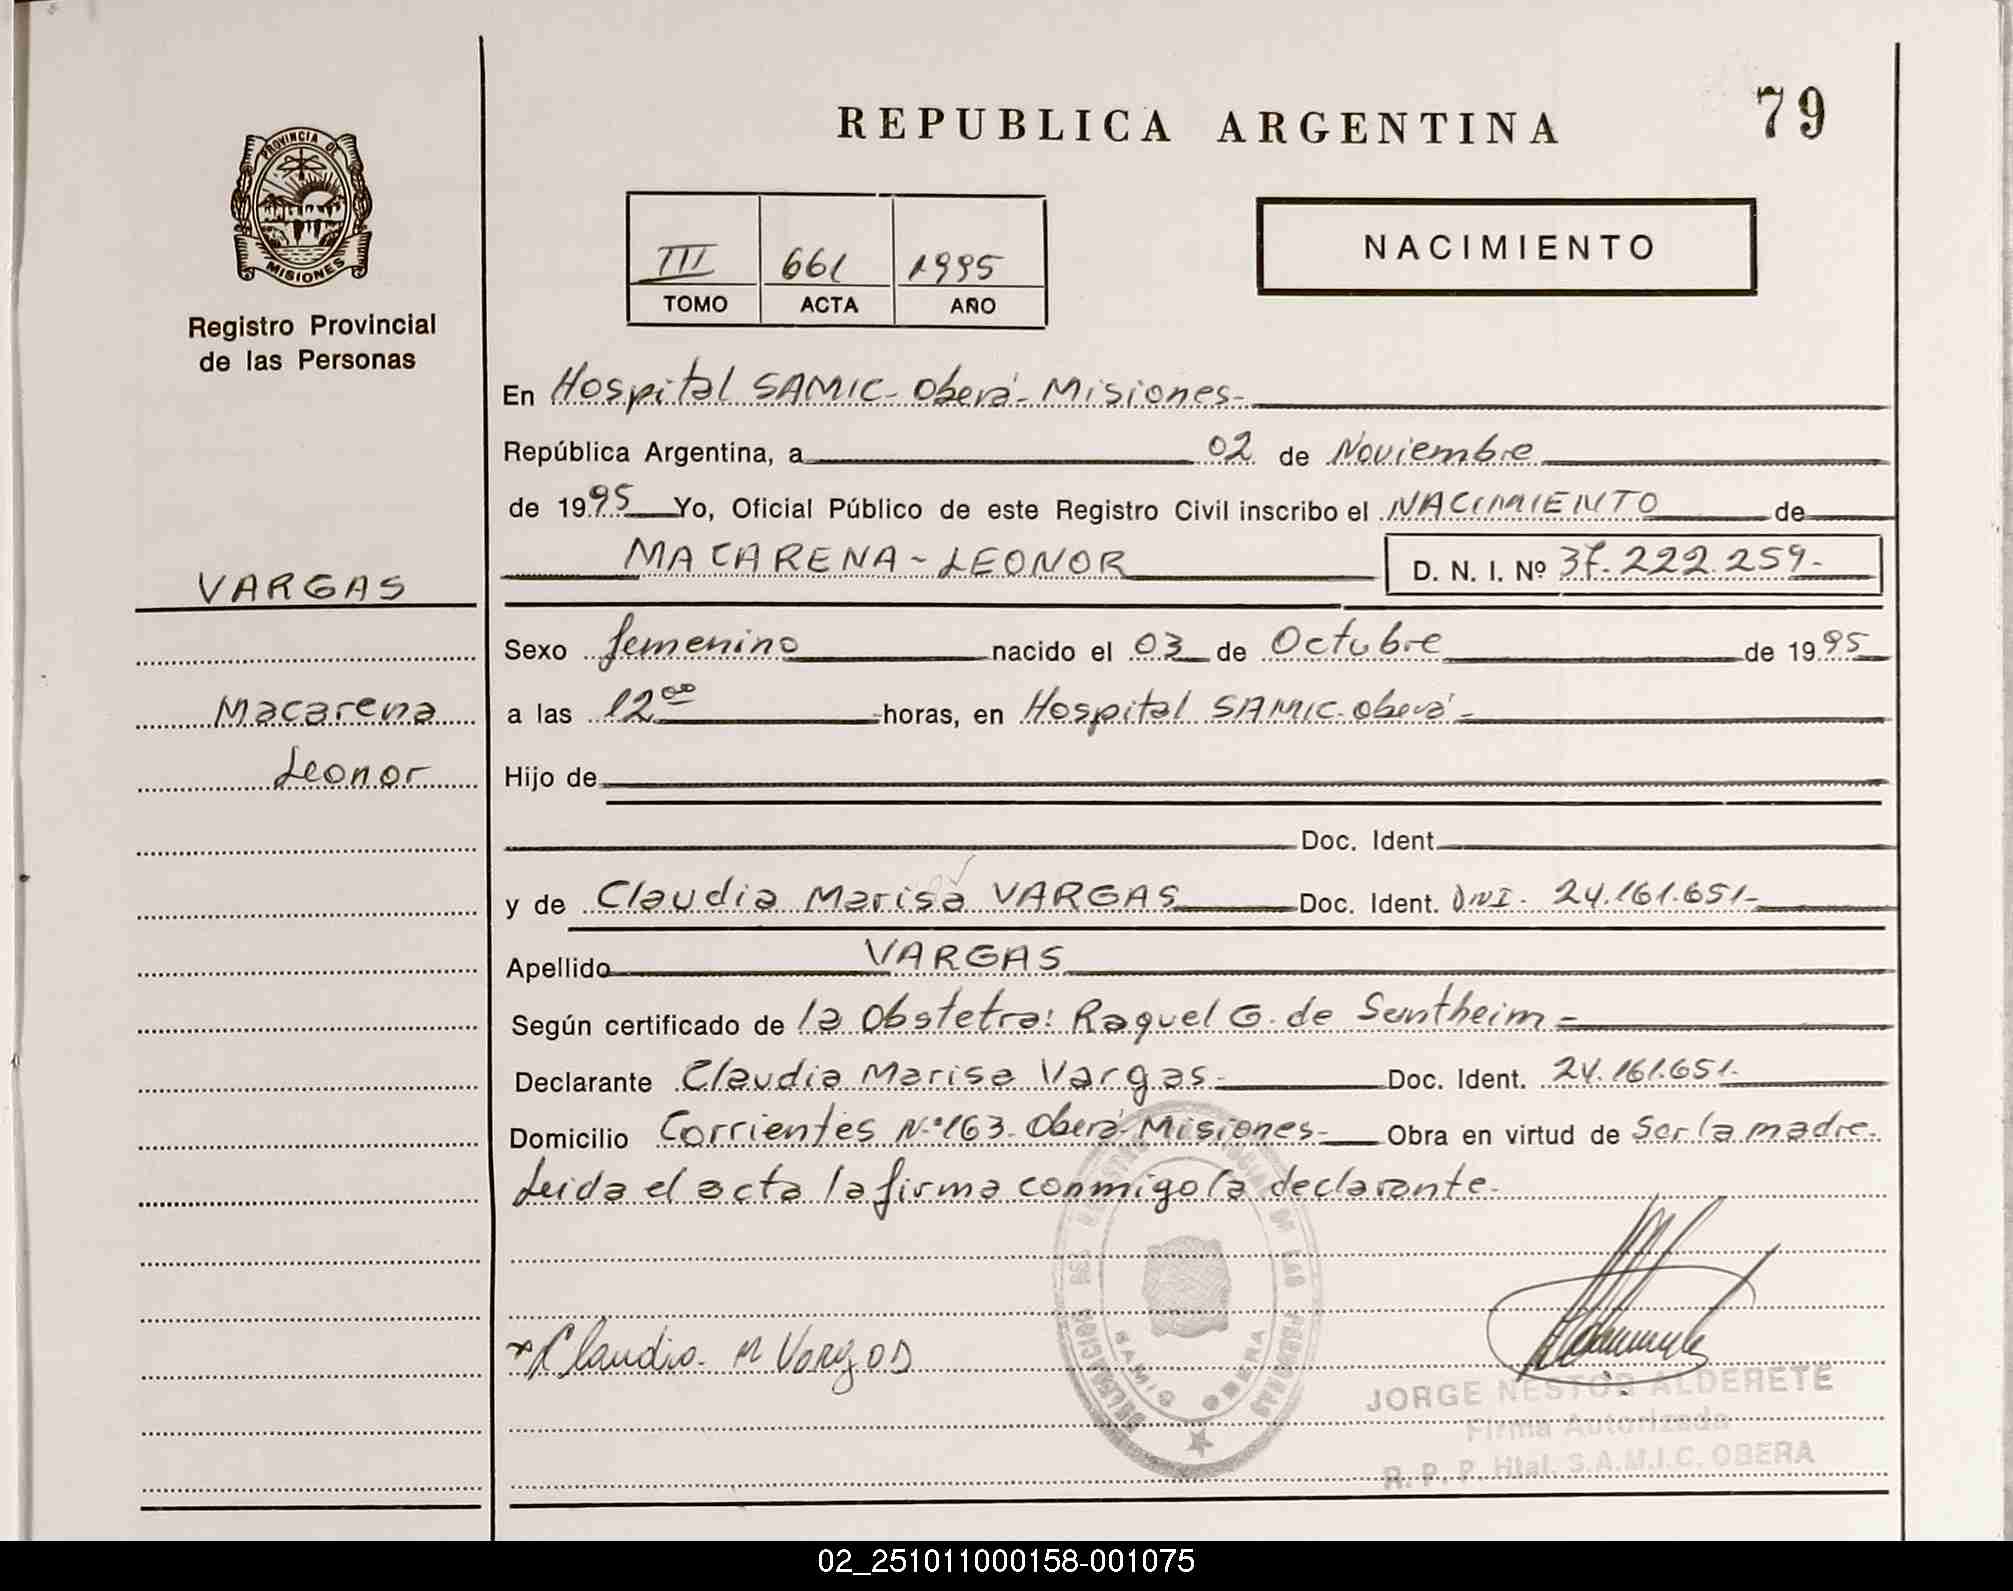 REPUBLICA ARGENTINA
79
PROVINCIA DE
MISIONES
Registro Provincial
de las Personas
III 661 1995
TOMO ACTA AÑO
NACIMIENTO
En Hospital SAMIC - Oberá - Misiones -
República Argentina, a 02 de Noviembre
de 1995 Yo, Oficial Público de este Registro Civil inscribo el NACIMIENTO de
MACARENA - LEONOR D. N. I. Nº 37.222.259.-
VARGAS
Sexo femenino nacido el 03 de Octubre de 1995
Macarena
a las 12ºº horas, en Hospital SAMIC - Oberá -
Leonor
Hijo de
Doc. Ident.
y de Claudia Marisa VARGAS Doc. Ident. DNI. 24.161.651.-
Apellido VARGAS
Según certificado de la Obstetra: Raquel G. de Suntheim -
Declarante Claudia Marisa Vargas - Doc. Ident. 24.161.651.
Domicilio Corrientes Nº 163 - Oberá - Misiones - Obra en virtud de Ser la madre.
Leida el acta la firma conmigo la declarante.
Claudia M Vargas
SAMIC OBERA
JORGE NESTOR ALDERETE
Firma Autorizada
R. P. P. Htal. S.A.M.I.C. OBERA
02_251011000158-001075